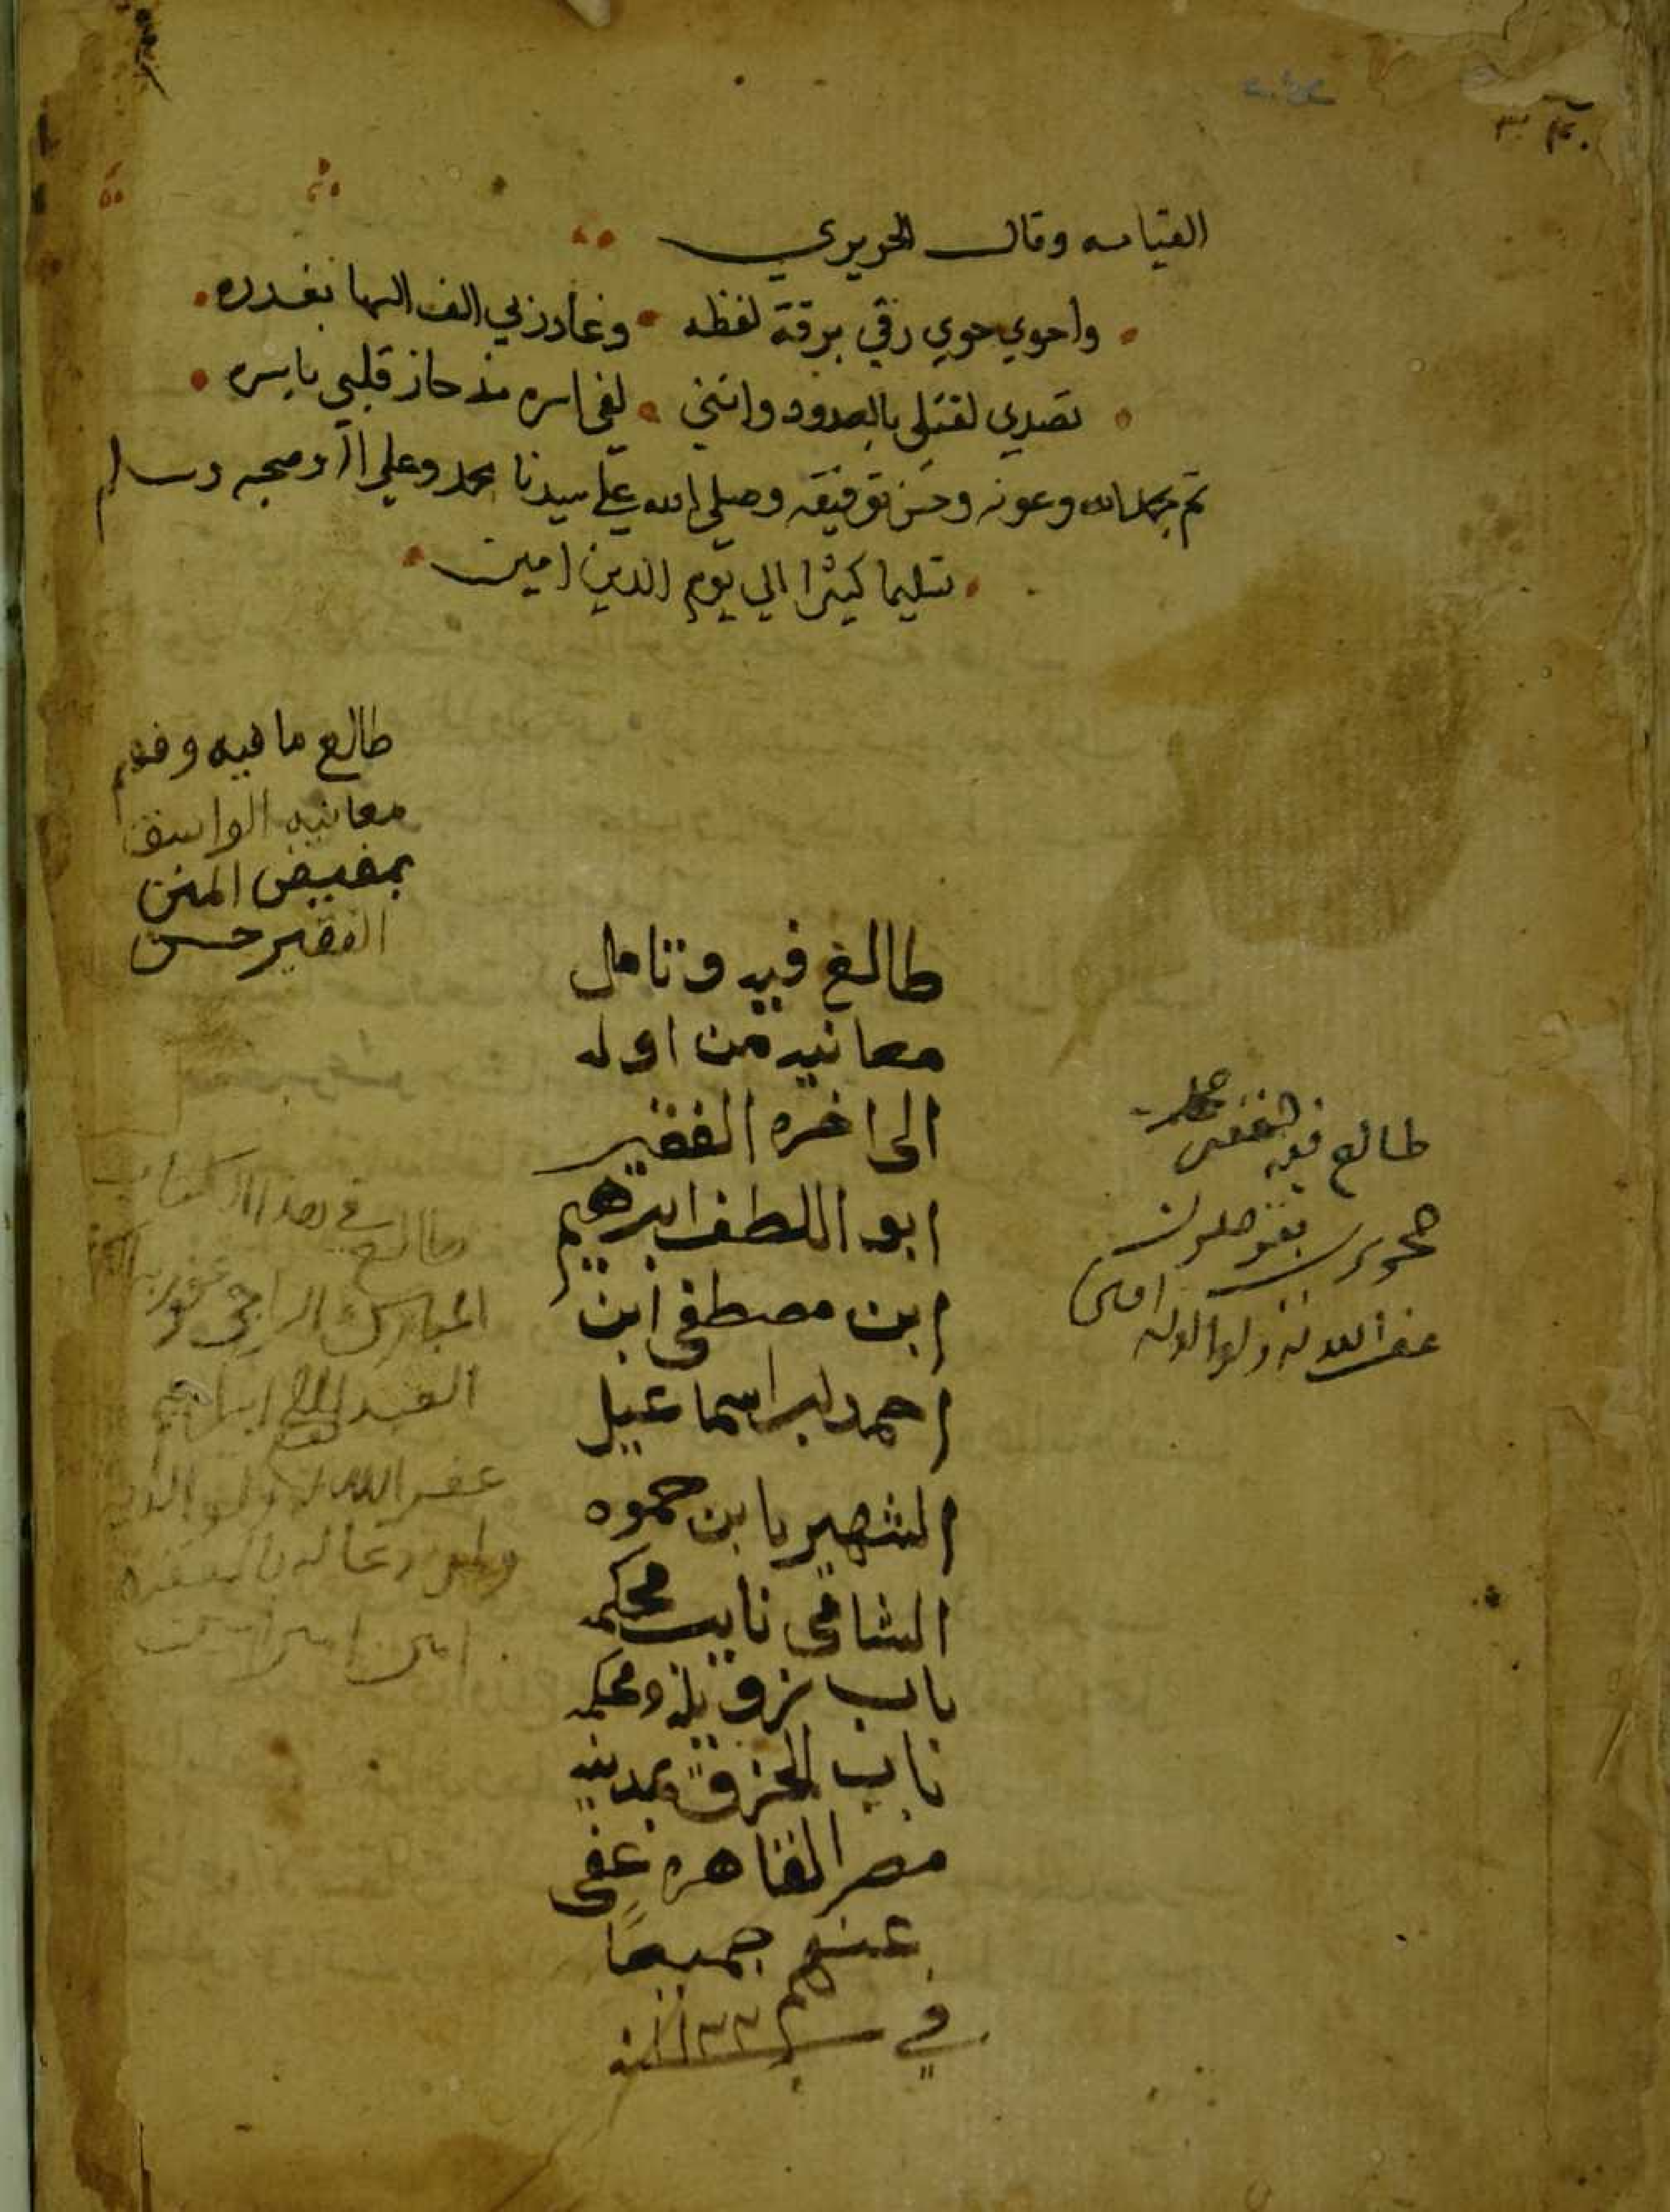 القيامه وقال الحريري
واحوي حوي رقي برقة لفظه وغادرني الف السها بغدره
تصدي لقتلي بالصدود وانني لفي اسره مذ حاز قلبي باسره
تم بحمد الله وعونه وحسن توفيقه وصلي الله علي سيدنا محمد وعلي اله وصحبه وسلم
تسليما كثيرا الي يوم الدين امين
طالع ما فيه وفهم
معانيه الواسق
بمفيض المنن
الفقير حسن
طالع فيه وتامل
معانيه من اوله
الى اخره الفقير
ابو اللطف ابرهيم
ابن مصطفى ابن
احمد ابن اسماعيل
الشهير بابن حموه
الشافى نايب محكمه
باب زويله ومحكمه
باب الخرق بمدينه
مصر القاهره عفى
عنهم جميعا
في سنه ١١٣٣
طالع فيه الفقير
عفر الله له ولوالديه امين
طالع في هذا الكتاب
المبارك الراجى عفو ربه
العبد ابراهيم
غفر الله له ولوالديه
ولمن دعا له بالمغفره
امين امين امين